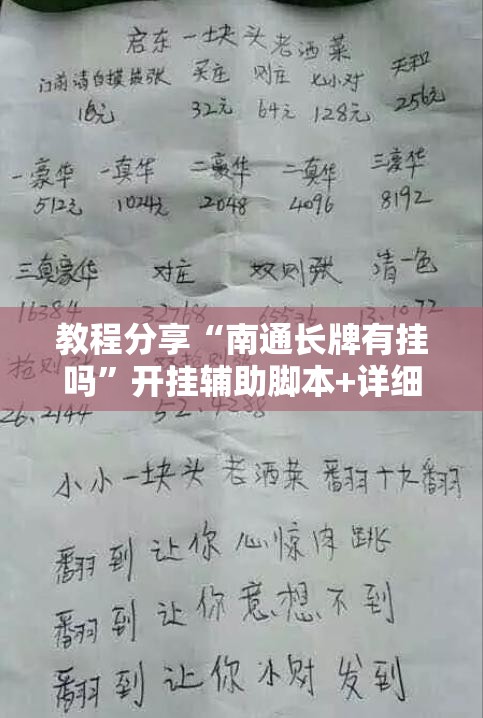 启东一块头老洒菜
门前清自摸独张 买庄 则庄 七小对 天和
16元 32元 64元 128元 256元
一豪华 一真华 二豪华 二真华 三豪华
512元 1024元 2048 4096 8192
三真豪华 对庄 双则张 清一色
16384 32768 65536 13.1072
教程分享“南通长牌有挂
吗”开挂辅助脚本+详细
抢则
26.2144 52
小小一块头 老洒菜 翻十九翻
翻到让你心惊肉跳
翻到让你意想不到
翻到让你小财发到